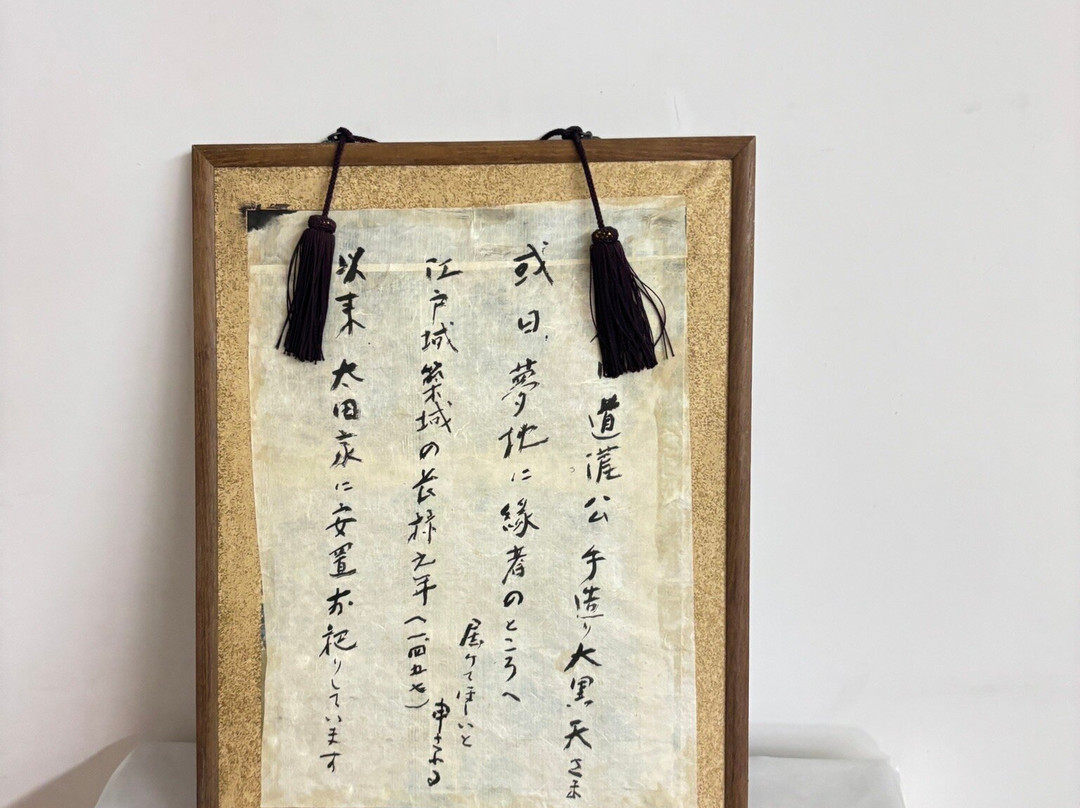 道灌公 手造り大黒天さま
或日、夢枕に縁者のところへ
届けてほしいと
申さるる
江戸城築城の長禄元年（一四五七）
以来 太田家に安置お祀りしています